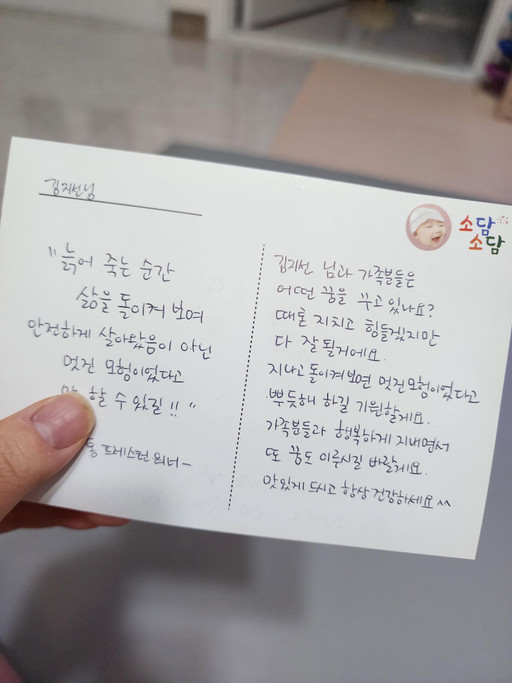 김지선님
"늙어 죽는 순간
삶을 돌이켜 보며
안전하게 살아왔음이 아닌
멋진 모험이었다고
할 수 있길!!"
프레스턴 워너-
소담
소담
김지선 님과 가족분들은
어떤 꿈을 꾸고 있나요?
때론 지치고 힘들겠지만
다 잘 될거에요.
지나고 돌이켜보면 멋진모험이었다고
뿌듯해 하길 기원할게요.
가족분들과 행복하게 지내면서
또 꿈도 이루시길 바랄게요.
맛있게 드시고 항상 건강하세요^^